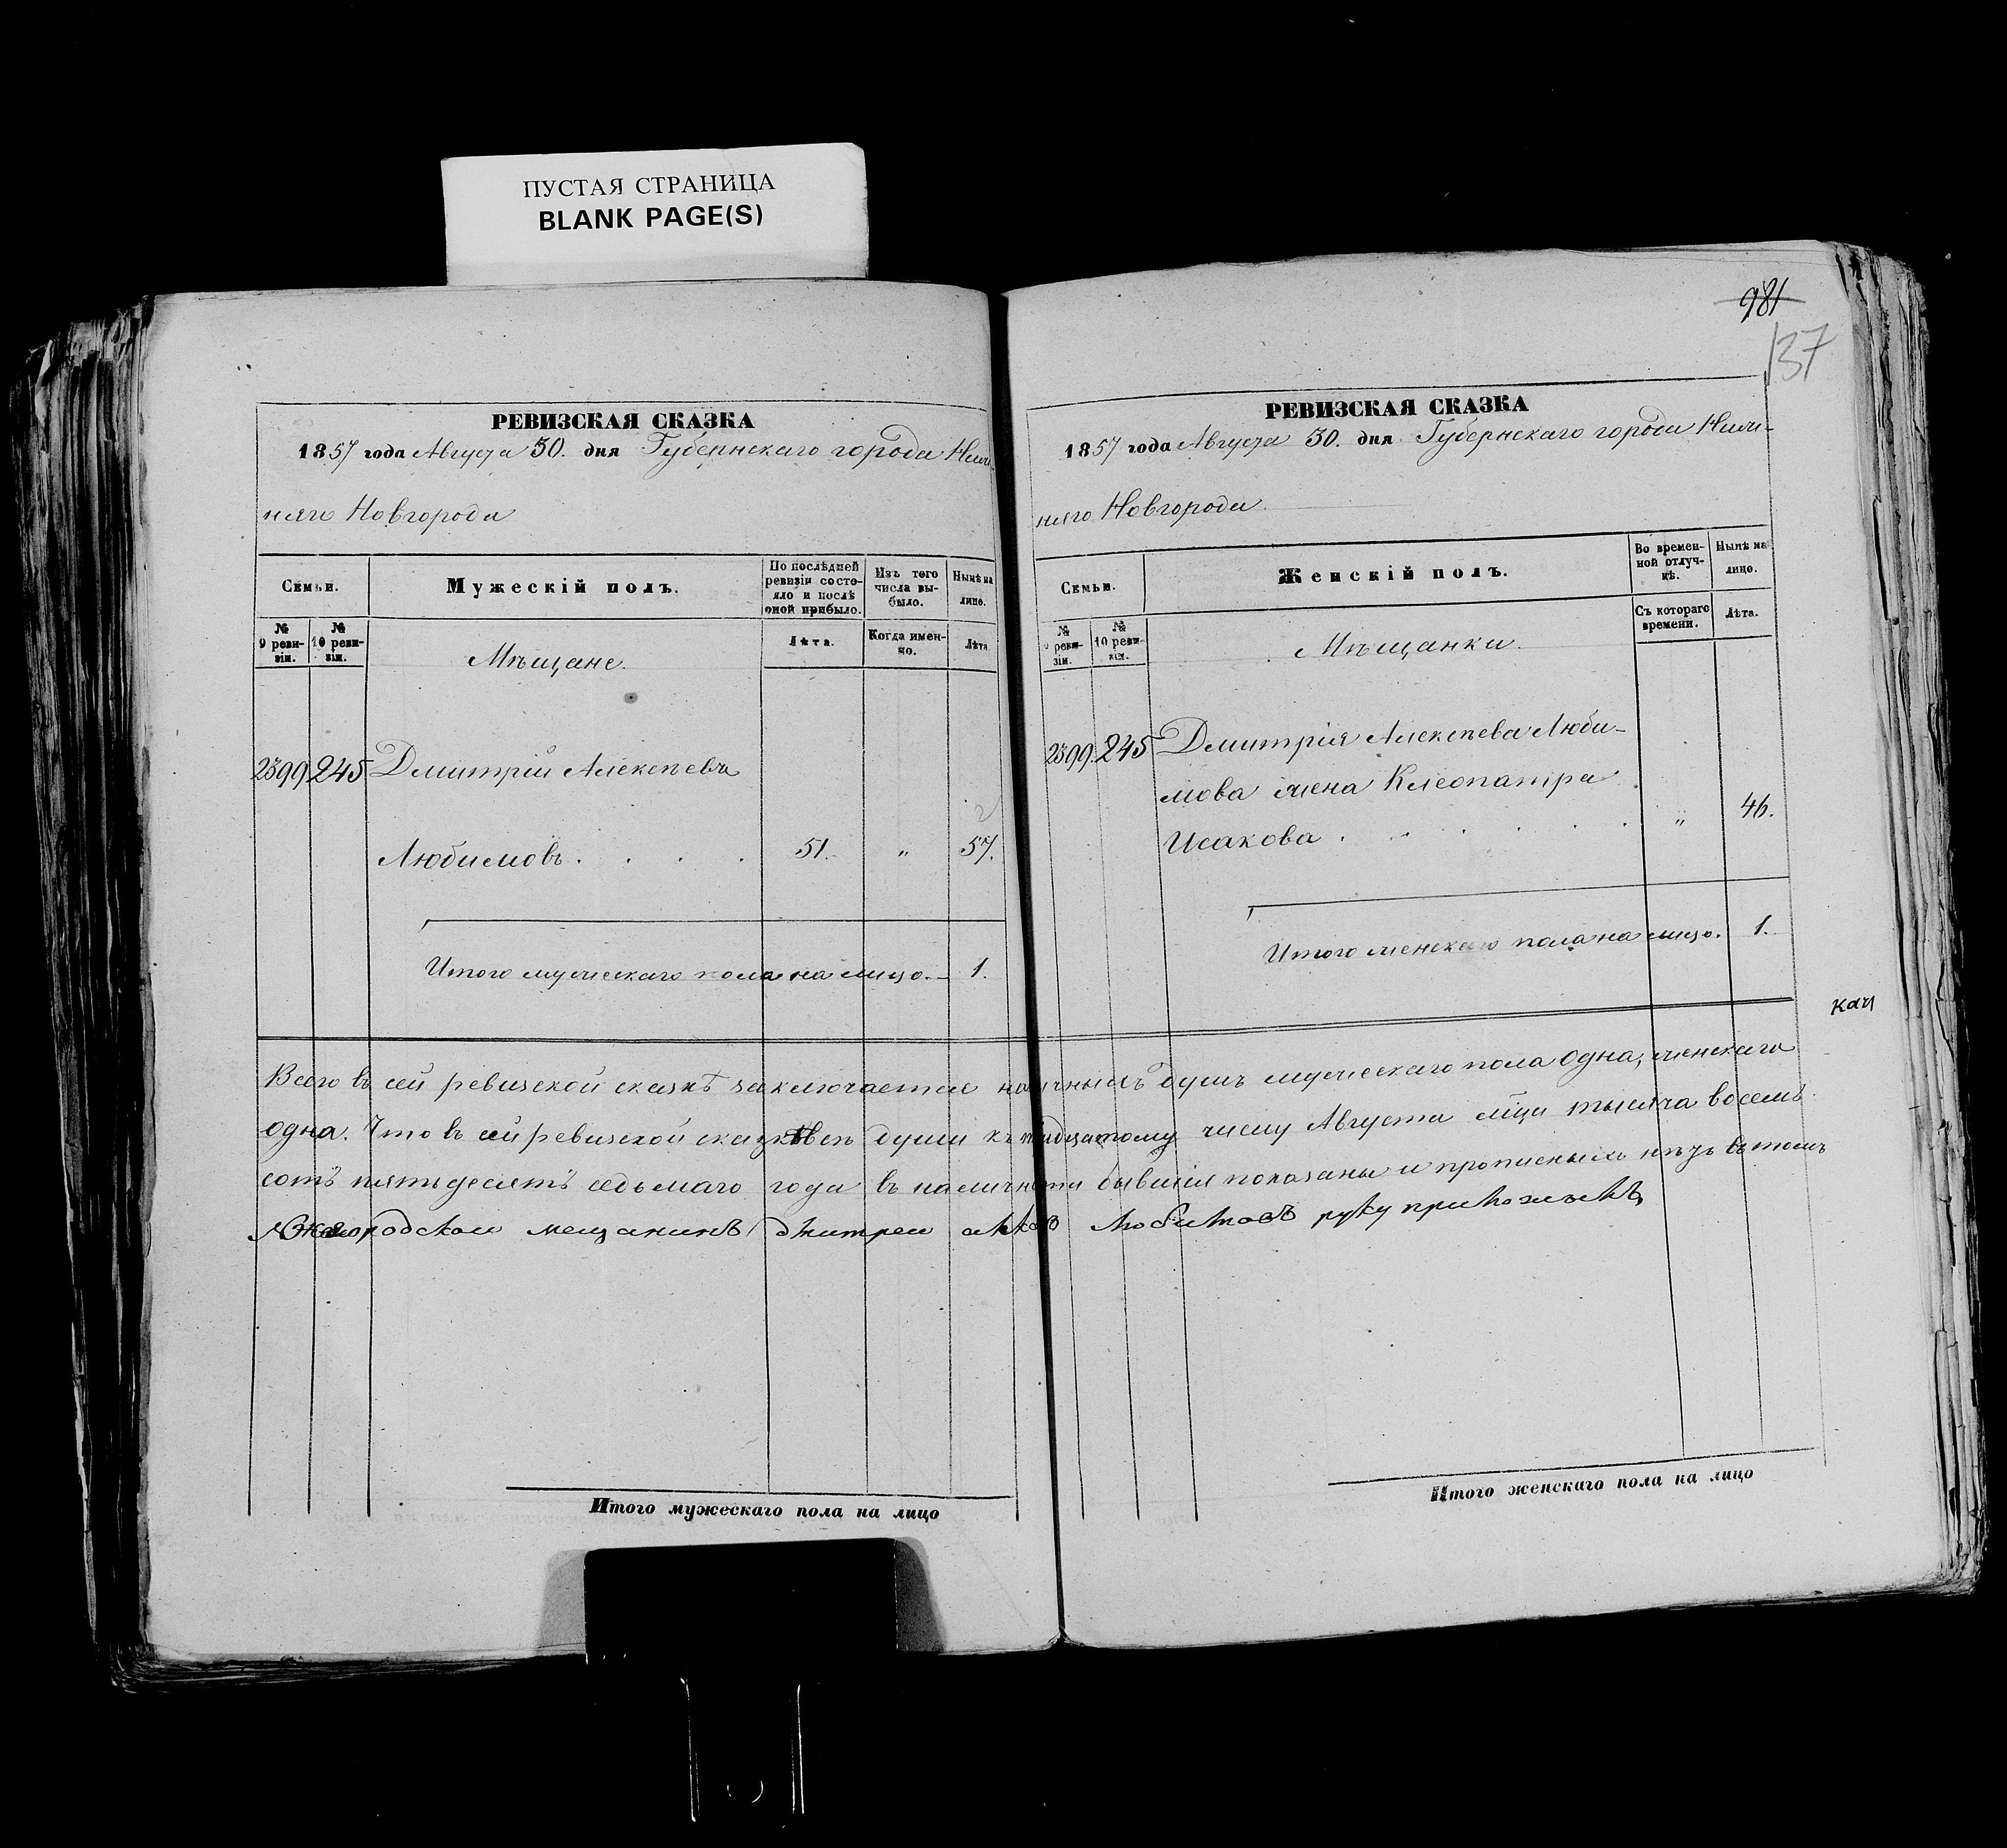 ПУСТАЯ СТРАНИЦА
BLANK PAGE(S)
981
137
РЕВИЗСКАЯ СКАЗКА
1857 года Августа 30. дня Губернскаго города Ниж-
няго Новгорода
Семьи.
Мужескій полъ.
По послѣдней ревизіи состояло и послѣ оной прибыло.
Изъ того числа выбыло.
Нынѣ на лицо.
№ 9 ревизіи.
№ 10 ревизіи.
Мѣщане.
Лѣта.
Когда именно.
Лѣта
2399 245 Дмитрій Алексѣевъ
Любимовъ . . . . 51. " 57.
Итого мужескаго пола на лицо. – 1.
РЕВИЗСКАЯ СКАЗКА
1857 года Августа 30. дня Губернскаго города Ниж-
няго Новгорода
Семьи.
Женскій полъ.
Во временной отлучкѣ.
Нынѣ на лицо.
№ 9 ревизіи.
№ 10 ревизіи.
Мѣщанки.
Съ котораго времени.
Лѣта.
2399. 245 Дмитрія Алексѣева Люби-
мова жена Клеопатра
Исакова . . . . . . " 46.
Итого женскаго пола на лицо. 1.
кач
Всего въ сей ревизской сказкѣ заключается наличныхъ душъ мужескаго пола одна, женскаго
одна. Что въ сей ревизской сказкѣ всѣ души къ тридцатому числу Августа мѣца тысяча восемь
сотъ пятьдесятъ седьмаго года въ наличности бывшія показаны и прописныхъ нѣтъ въ томъ
мещанинъ дмитреи Любимовъ руку приложилъ
Итого мужескаго пола на лицо
Итого женскаго пола на лицо